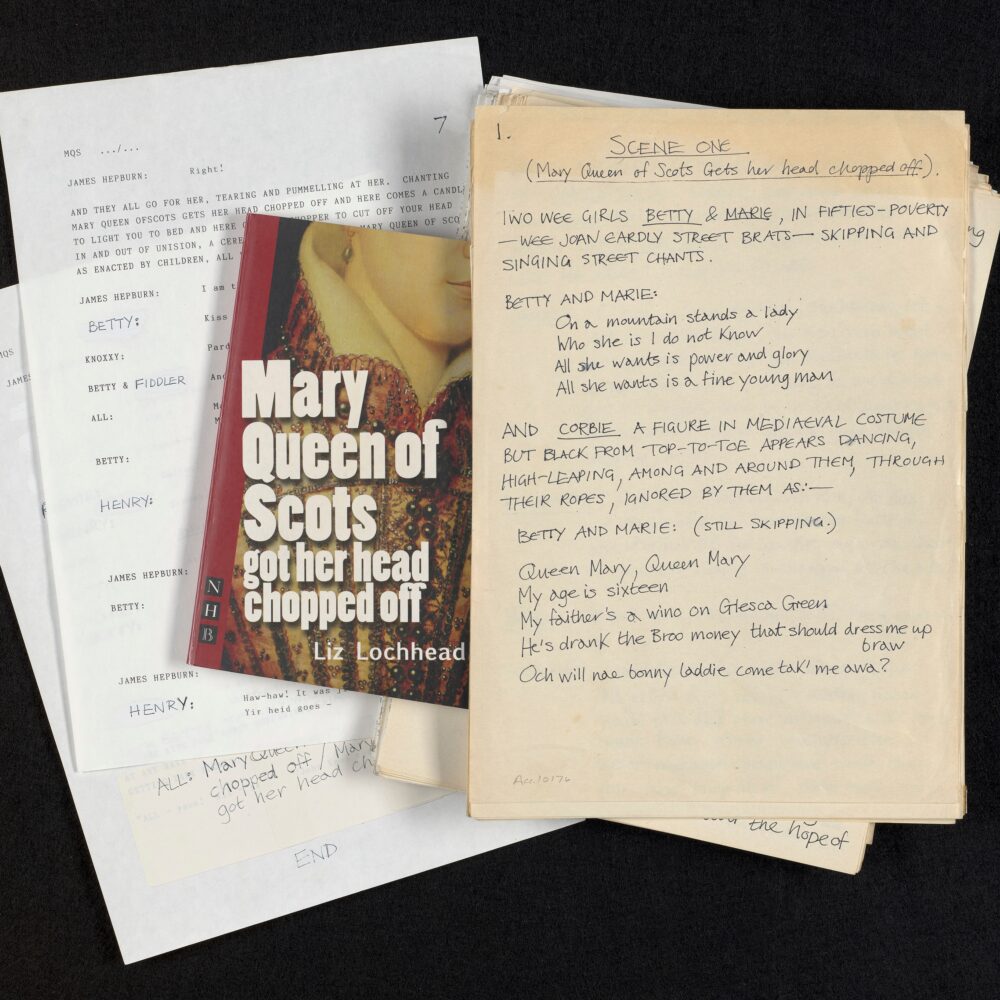 7
MQS .../...
JAMES HEPBURN: Right!
AND THEY ALL GO FOR HER, TEARING AND PUMMELLING AT HER. CHANTING
MARY QUEEN OFSCOTS GETS HER HEAD CHOPPED OFF AND HERE COMES A CANDL
TO LIGHT YOU TO BED AND HERE CHOPPER TO CUT OFF YOUR HEAD
IN AND OUT OF UNISION, A CERE MARY QUEEN OF SCO
AS ENACTED BY CHILDREN, ALL
JAMES HEPBURN: I am t
BETTY: Kiss
KNOXXY: Pard
BETTY & FIDDLER
ALL:
BETTY:
HENRY:
JAMES HEPBURN:
BETTY:
JAMES HEPBURN:
HENRY: Haw-haw! It was
Yir heid goes -
MQS
JAMES
ALL: Mary Queen
chopped off / Mary
got her head ch
END
Mary
Queen of
Scots
got her head
chopped off
Liz Lochhead
NHB
1.
SCENE ONE
(Mary Queen of Scots Gets her head chopped off).
TWO WEE GIRLS BETTY & MARIE, IN FIFTIES-POVERTY
—WEE JOAN EARDLY STREET BRATS— SKIPPING AND
SINGING STREET CHANTS.
BETTY AND MARIE:
On a mountain stands a lady
Who she is I do not know
All she wants is power and glory
All she wants is a fine young man
AND CORBIE A FIGURE IN MEDIAEVAL COSTUME
BUT BLACK FROM TOP-TO-TOE APPEARS DANCING,
HIGH-LEAPING, AMONG AND AROUND THEM, THROUGH
THEIR ROPES, IGNORED BY THEM AS:—
BETTY AND MARIE: (STILL SKIPPING.)
Queen Mary, Queen Mary
My age is sixteen
My faither's a wino on Glesca Green
He's drank the Broo money that should dress me up
braw
Och will nae bonny laddie come tak' me awa?
Acc.10176
the hope of